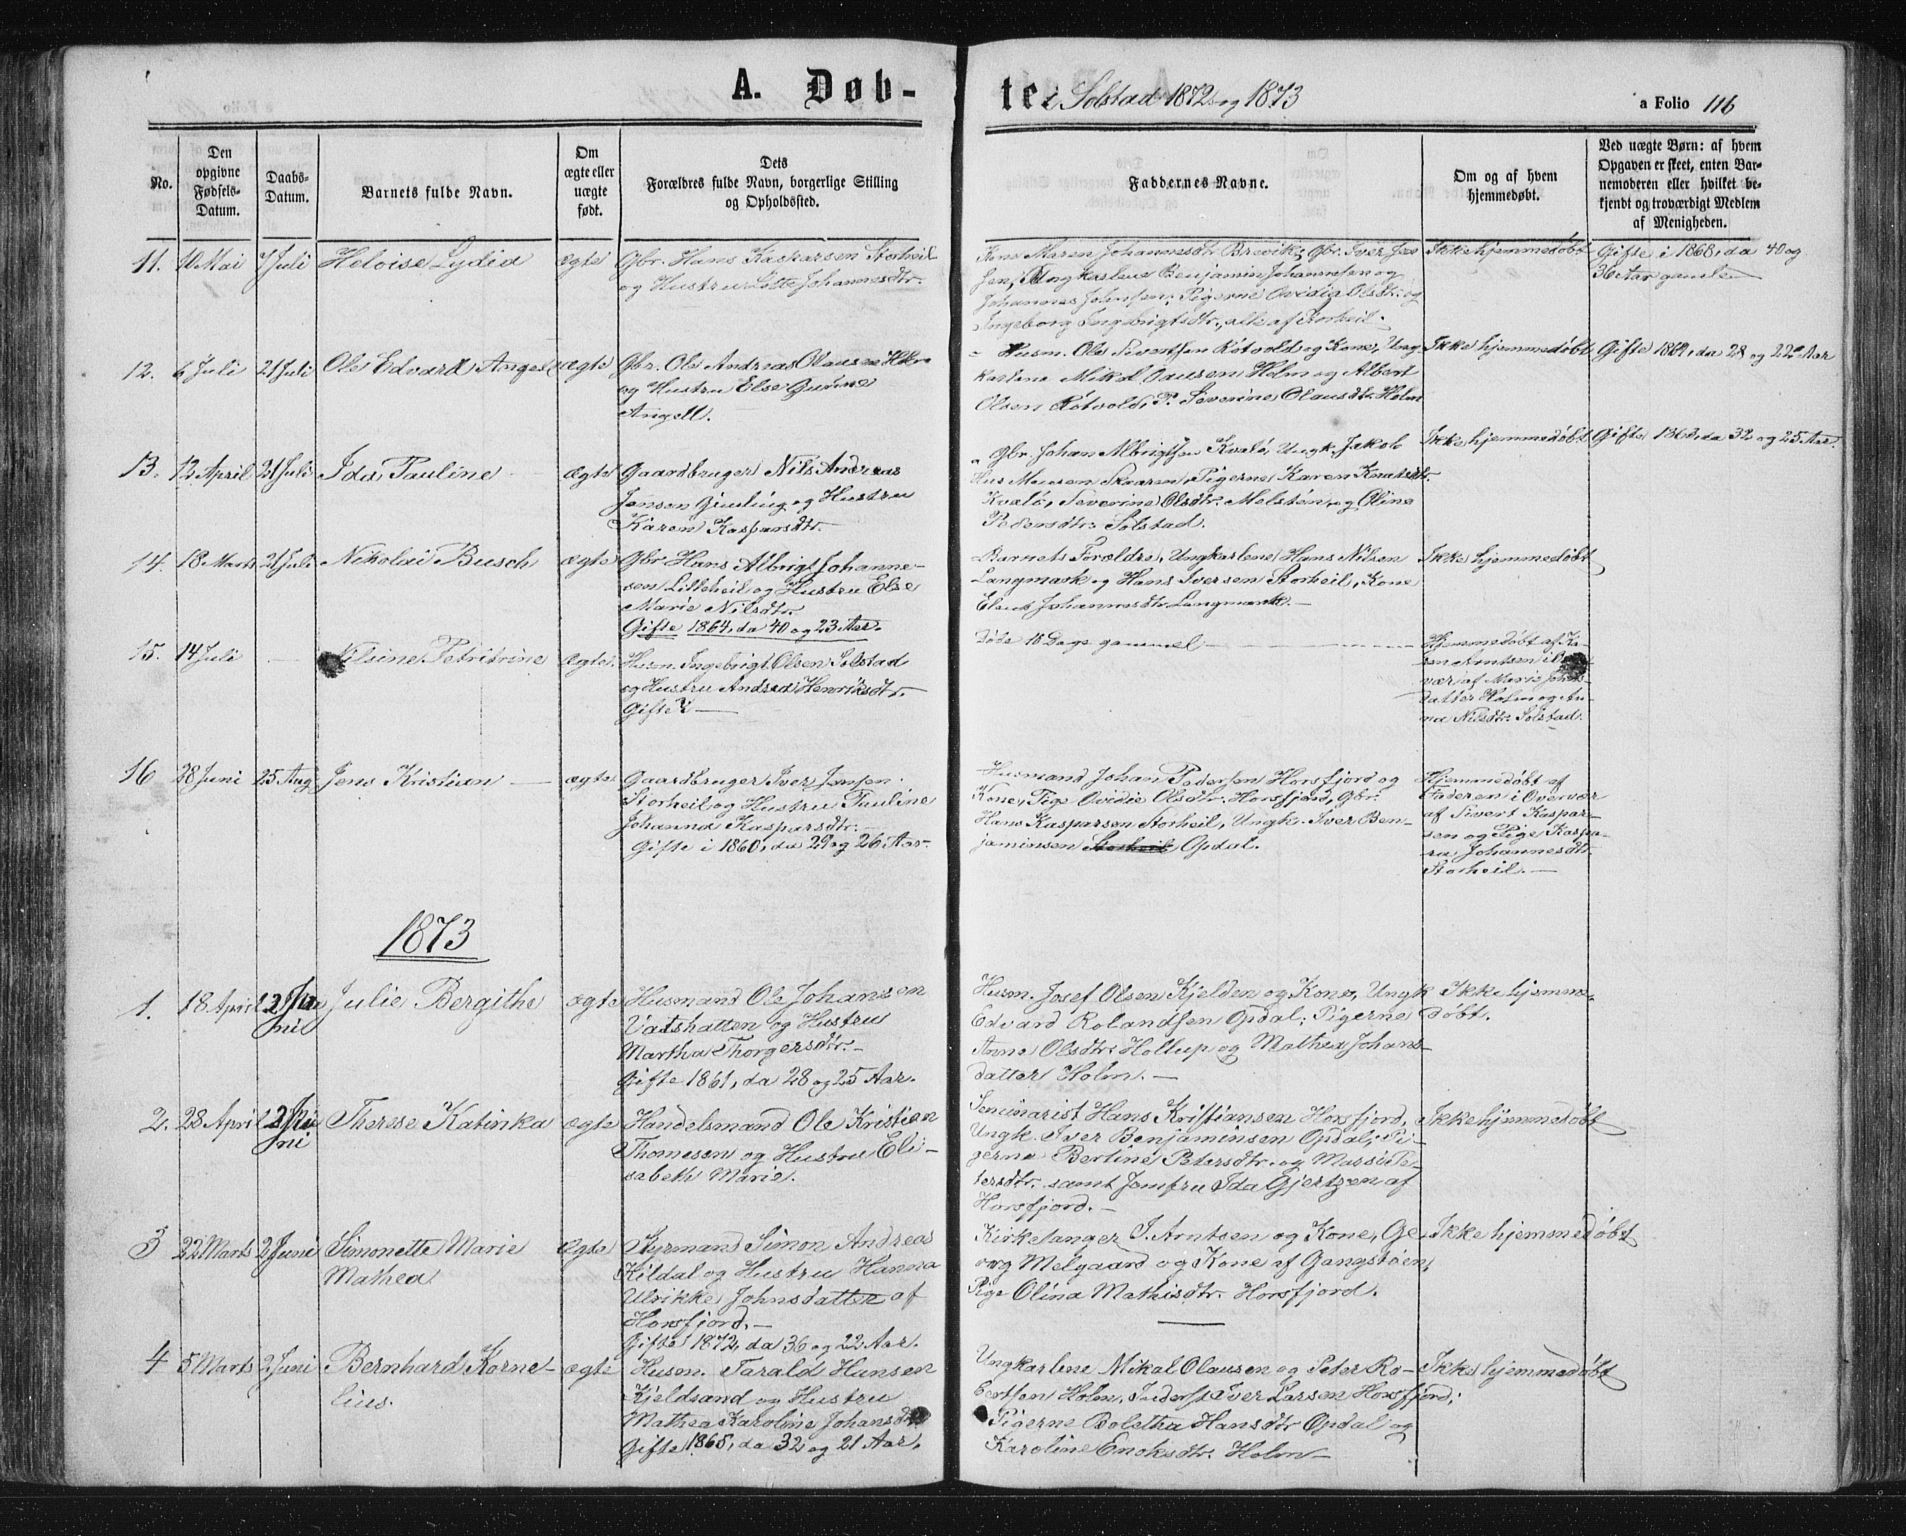 A. Døb-
te i Solstad 1872 og 1873
a Folio 116
No.
Den
opgivne
Fødsels-
Datum.
Daabs-
Datum.
Barnets fulde Navn.
Om
ægte eller
uægte
født.
Dets
Forældres fulde Navn, borgerlige Stilling
og Opholdssted.
Faddernes Navne.
Om og af hvem
hjemmedøbt.
Ved uægte Børn: af hvem
Opgaven er skeet, enten Bar-
nemoderen eller hvilket be-
kjendt og troværdigt Medlem
af Menigheden.
11. 10 Mai 7 Juli Heloise Lydia ægte
Gbr. Hans Kaspersen Storheil
og Hustru Lotte Johannesdtr.
Kone Maren Johannesdtr. Brevik; Gbr. Iver Jen
sen, Ungkarlene Benjamin Johannesen og
Johannes Johnsen; Pigerne Ovidia Olsdtr. og
Ingeborg Ingbrigtsdtr., alle af Storheil.
Ikke hjemmedøbt
Gifte i 1868, da 40 og
36 Aar gamle
12. 6 Juli 21 Juli Ole Edvard Angel ægte
Gbr. Ole Andreas Olausen Holm
og Hustru Else
Angell.
Husm. Ole Sivertsen Rotvold og Kone, Ung
karlene Mikal Olausen Holm og Albert
Olsen Rotvold, P. Severine Olausdtr. Holm
Ikke hjemmedøbt
Gifte 1869, da 28 og 22 Aar
13. 12 April 21 Juli Ida Pauline ægte
Gaardbruger Nils Andreas
Jensen og Hustru
Karen Kaspersdtr.
Gbr. Johan Albrigtsen Kvalø, Ungk. Jakob
Skaren, Pigerne Karen Knutsdtr.
Kvalø, Severine Olsdtr. Melsten, og Oline
Pedersdtr. Solstad.
Ikke hjemmedøbt
Gifte 1863, da 32 og 25 Aar.
14. 18 Marts 21 Juli Nikolai Busch ægte
Gbr Hans Albrigt Johanne-
sen Lilleheil og Hustru Else
Marie Nilsdtr.
Gifte 1864, da 40 og 23 Aar.
Barnets Forældre, Ungkarlene Hans Nilsen
Langmark og Hans Iversen Storheil, Kone
Johannesdtr. Langmark. —
Ikke hjemmedøbt
15. 14 Juli — Nilsine Petritrine ægte
Husm. Ingebrigt Olsen Solstad
og Hustru Andrea Henriksdtr.
Gifte? —
Døde 10 Dage gammel —
Hjemmedøbt af
Arntsen i Over
vær af Marie Johns-
datter Holm og An-
na Nilsdtr. Solstad.
16 28 Juni 25 Aug Jens Kristian — ægte
Gaardbruger Iver Jensen
Storheil og Hustru Pauline
Johanna Kaspersdtr. —
Gifte i 1860, da 29 og 26 Aar.
Husmand Johan Pedersen Horsfjord og
Kone, Pige Ovidie Olsdtr. Horsfjord, Gbr.
Hans Kaspersen Storheil, Ungk. Iver Ben-
jaminsen Storheil Opdal.
Hjemmedøbt af
Faderen i Overvær
af Sivert Kasper-
sen og Pige Kaspa-
ra Johannesdtr.
Storheil. —
1873
1. 18 April 2 Ju
ni Julie Bergithe ægte
Husmand Ole Johansen
Vatshatten og Hustru
Martha Thorgersdtr. —
Gifte 1861, da 28 og 25 Aar.
Husm. Josef Olsen Kjelden og Kone, Ungk
Edvard Rolandsen Opdal; Pigerne
Anne Olsdtr. Hollup og Mathea Johans-
datter Holm. —
Ikke hjemme-
døbt.
2. 28 April 2 Ju
ni Therese Katinka ægte
Handelsmand Ole Kristian
Thomesen og Hustru Eli-
sabeth Marie.
Seminarist Hans Kristiansen Horsfjord,
Ungk. Iver Benjaminsen Opdal; Pi-
gerne Bertine Petersdtr. og Pe-
tersdtr. samt Jomfru Ida Gjertzen af
Horsfjord. —
Ikke hjemmedøbt
3 22 Marts 2 Juni Simonette Marie
Mathea ægte
Styrmand Simon Andreas
Kildal og Hustru Hanna
Ulrikke Johnsdatter af
Horsfjord. —
Gifte 1872, da 36 og 22 Aar.
Kirkesanger I. Arntsen og Kone, Ge
org Melgaard og Kone af Gangstøen;
Pige Olina Mathisdtr. Horsfjord.
Ikke hjemmedøbt
4 5 Marts 2 Juni Bernhard Korne-
lius. ægte
Husm. Tarald Hansen
Kjeldsand og Hustru
Mathea Karoline Johansdtr.
Gifte 1865, da 32 og 21 Aar.
Ungkarlene Mikal Olausen og Peter Ro-
bertsen Holm, Iver Larsen Horsfjord;
Pigerne Boletha Hansdtr Opdal og
Karoline Enoksdtr. Holm —
Ikke hjemmedøbt